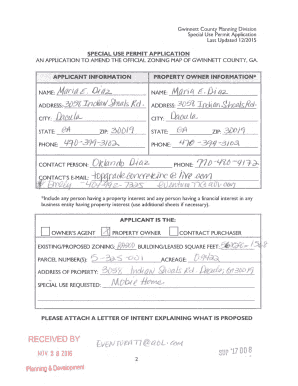 Gwinnett County Planning Division
Special Use Permit Application
Last Updated 12/2015
SPECIAL USE PERMIT APPLICATION
AN APPLICATION TO AMEND THE OFFICIAL ZONING MAP OF GWINNETT COUNTY, GA.
APPLICANT INFORMATION PROPERTY OWNER INFORMATION*
NAME: Maria E. Diaz NAME: Maria E. Diaz
ADDRESS: 3058 Indian Shoals Rd. ADDRESS: 3058 Indian Shoals Rd
CITY: Dacula CITY: Dacula
STATE: GA ZIP: 30019 STATE: GA ZIP: 30019
PHONE: 470-399-3102 PHONE: 470-399-3102
CONTACT PERSON: Orlando Diaz PHONE: 770-480-9172
CONTACT'S E-MAIL:
404-992-7325
*Include any person having a property interest and any person having a financial interest in any
business entity having property interest (use additional sheets if necessary).
APPLICANT IS THE:
OWNER'S AGENT X PROPERTY OWNER CONTRACT PURCHASER
EXISTING/PROPOSED ZONING: BUILDING/LEASED SQUARE FEET:
PARCEL NUMBER(S): 5-325-001 ACREAGE:
ADDRESS OF PROPERTY: 3058 Indian Shoals Rd Dacula, GA 30019
SPECIAL USE REQUESTED: Mobile Home
PLEASE ATTACH A LETTER OF INTENT EXPLAINING WHAT IS PROPOSED
RECEIVED BY
2016
Planning & Development
2